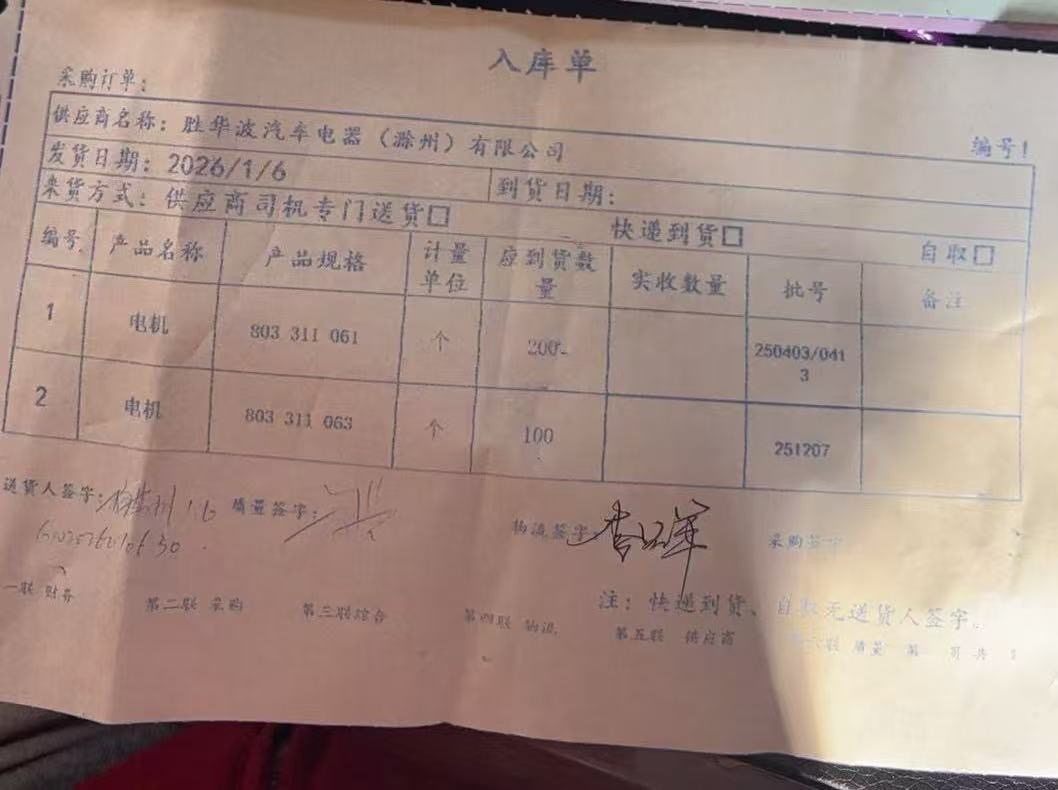 入库单
采购订单：
供应商名称：胜华波汽车电器（滁州）有限公司 编号！
发货日期：2026/1/6 到货日期：
来货方式：供应商司机专门送货□ 快递到货□ 自取□
编号 产品名称 产品规格 计量单位 应到货数量 实收数量 批号 备注
1 电机 803 311 061 个 200 250403/0413
2 电机 803 311 063 个 100 251207
送货人签字： 1.6 质量签字： 物流签字 采购签字
注：快递到货、自取无送货人签字。
一联 财务 第二联 采购 第三联综合 第四联 物流 第五联 供应商 第六联 质量 第 页共